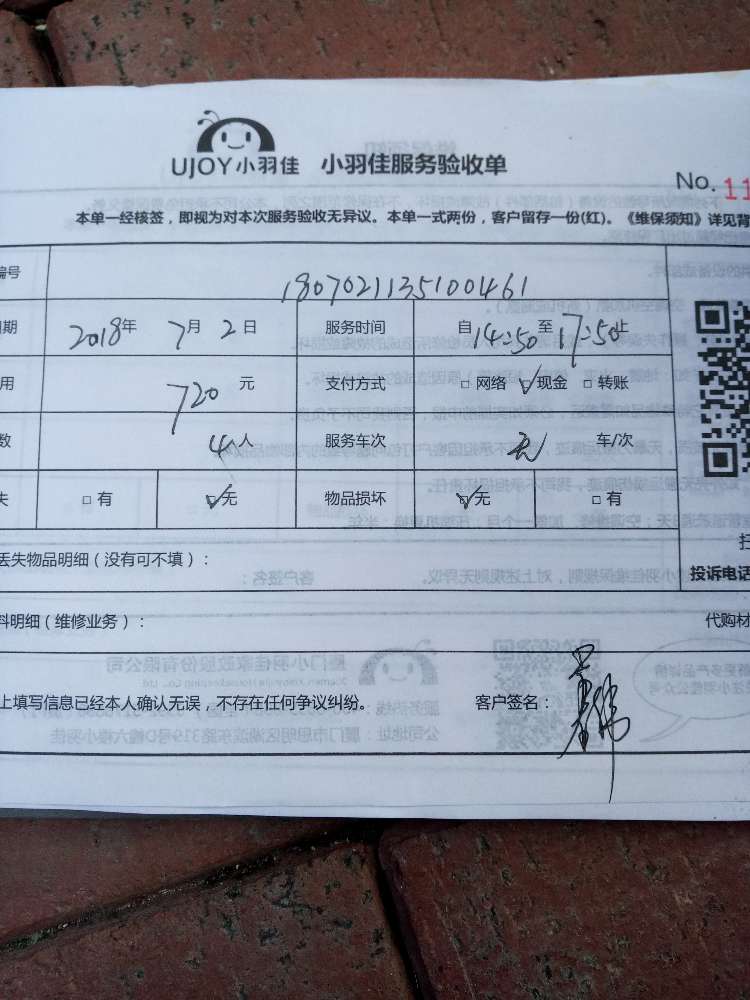 UJOY小羽佳 小羽佳服务验收单
No. 11
本单一经核签，即视为对本次服务验收无异议。本单一式两份，客户留存一份(红)。《维保须知》详见背
编号 1807021135100461
期 2018年 7月 2日 服务时间 自14:50至17:50止
用 720 元 支付方式 □ 网络 ☑现金 □ 转账
数 4人 服务车次 无 车/次
失 □ 有 ☑无 物品损坏 ☑无 □ 有
丢失物品明细（没有可不填）：
扫
投诉电话
料明细（维修业务）： 代购材
上填写信息已经本人确认无误，不存在任何争议纠纷。 客户签名：